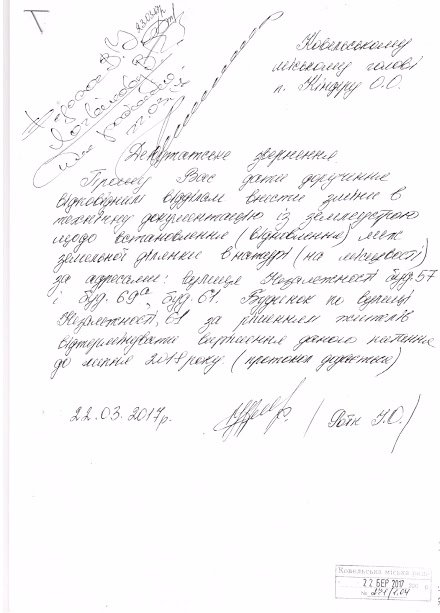 Ковельському
міському голові
п. Кіндру О.О.
Депутатське звернення
Прошу Вас дати доручення
відповідним відділам внести зміни в
технічну документацію із землеустрою
щодо встановлення (відновлення) меж
земельної ділянки в натурі (на місцевості)
за адресами: вулиця Незалежності буд. 57
і буд. 69а, буд. 61. Будинок по вулиці
Незалежності, 61 за рішенням жителів
відтермінувати вирішення даного питання
до липня 2018 року. (протокол додається)
22.03.2017р.
Ковельська міська рада
22 БЕР 2017